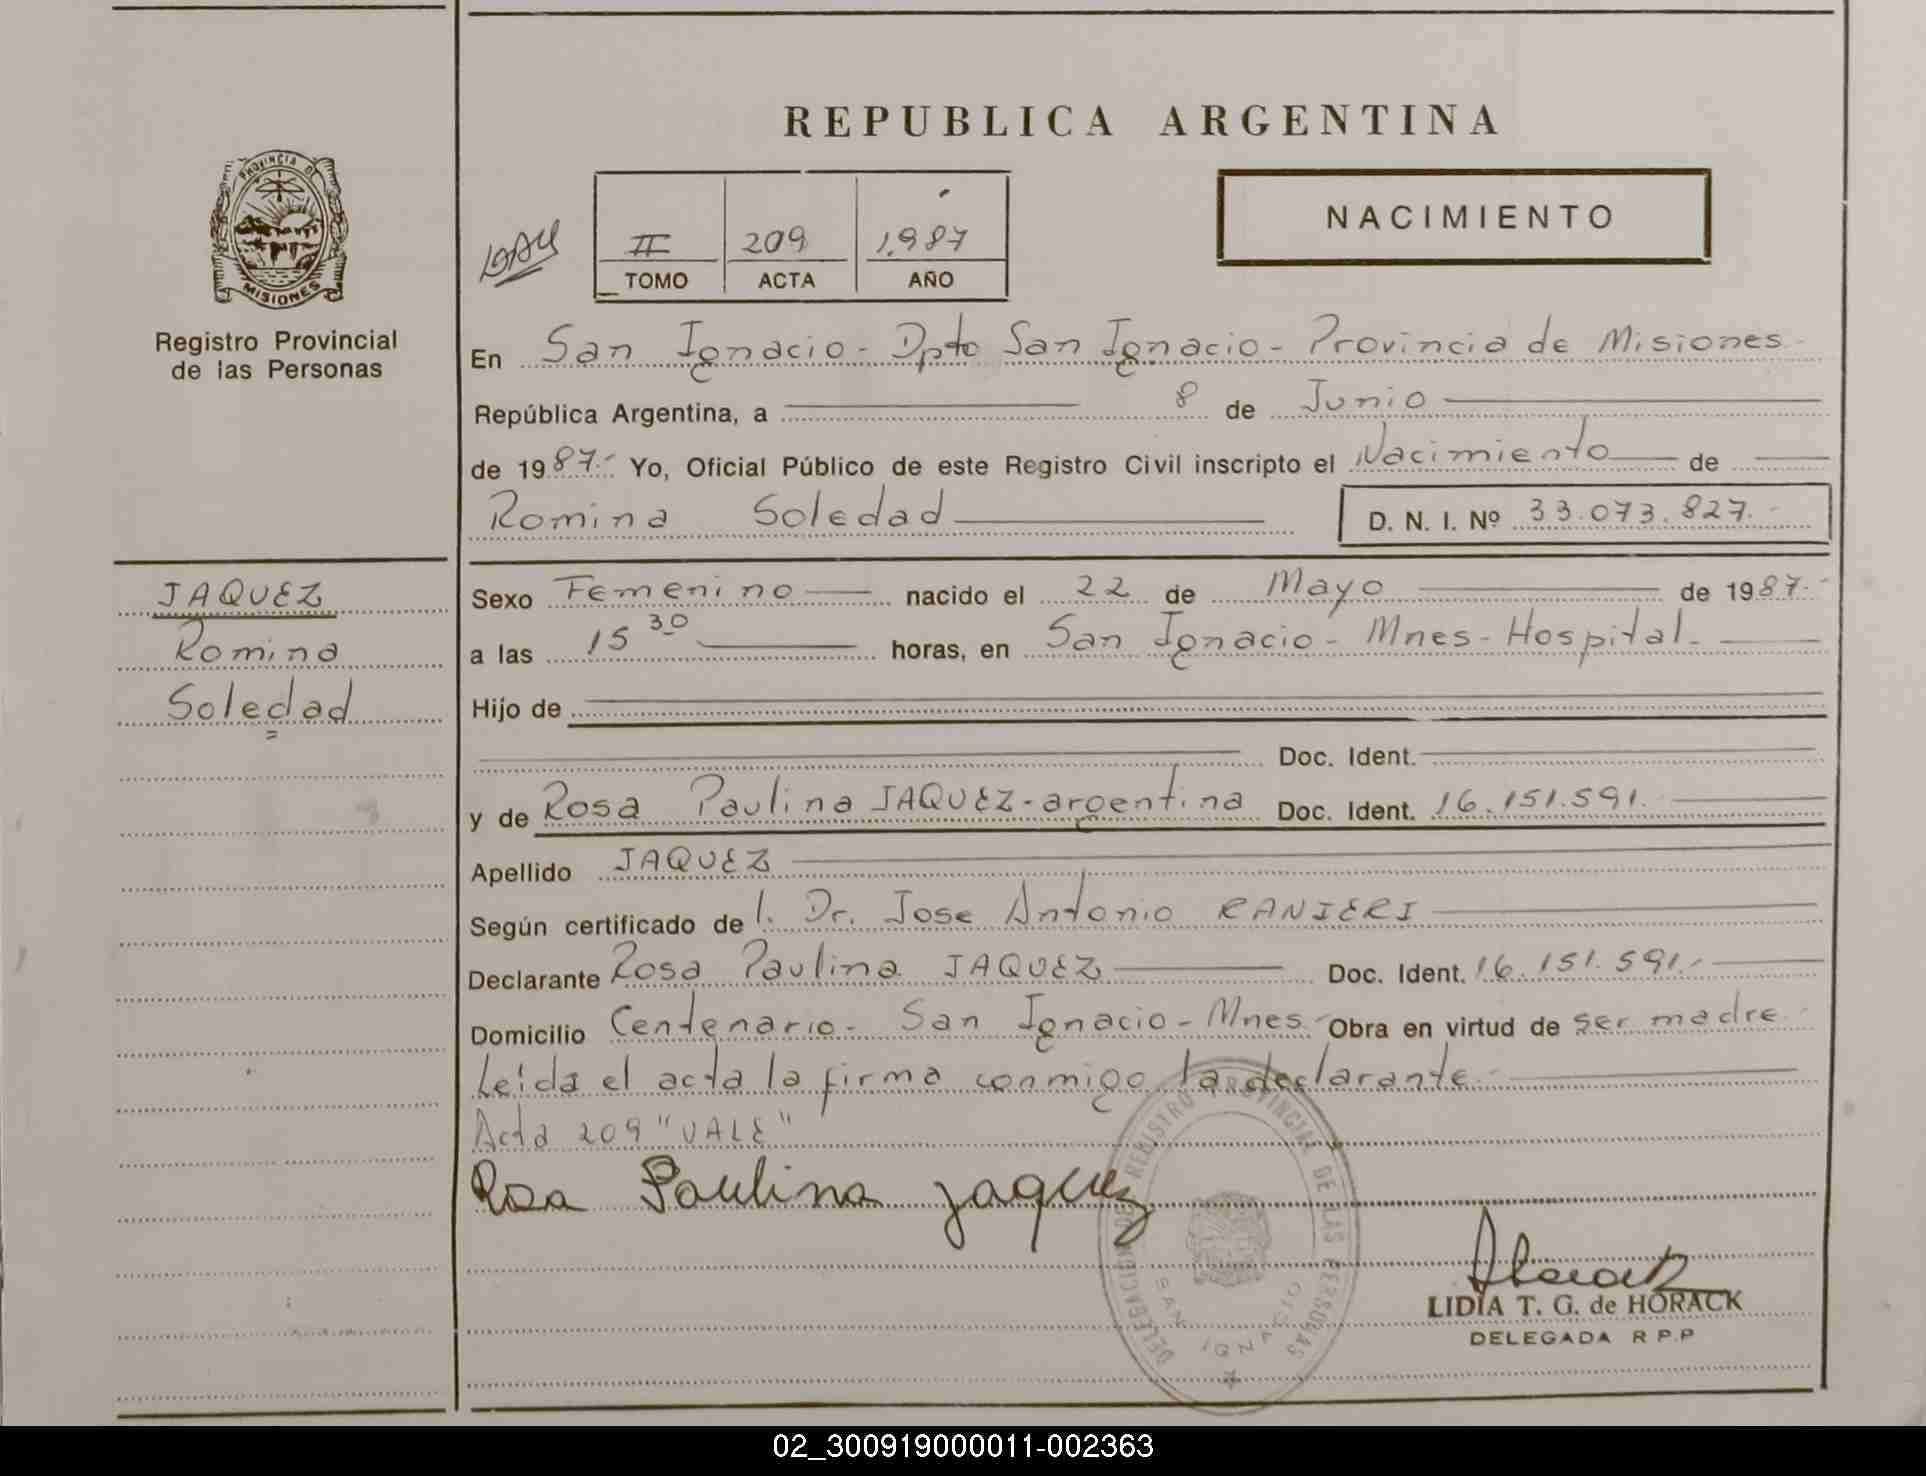 REPUBLICA ARGENTINA
PROVINCIA DE
MISIONES
Registro Provincial
de las Personas
NACIMIENTO
II 209 1.987
TOMO ACTA AÑO
En San Ignacio - Dpto San Ignacio - Provincia de Misiones -
República Argentina, a 8 de Junio
de 1987.- Yo, Oficial Público de este Registro Civil inscripto el Nacimiento de
Romina Soledad D. N. I. Nº 33.073.827.-
JAQUEZ
Romina
Soledad
Sexo Femenino nacido el 22 de Mayo de 1987.-
a las 15 30 horas, en San Ignacio - Mnes - Hospital.
Hijo de
Doc. Ident.
y de Rosa Paulina JAQUEZ - argentina Doc. Ident. 16.151.591.
Apellido JAQUEZ
Según certificado de l. Dr. Jose Antonio RANIERI
Declarante Rosa Paulina JAQUEZ Doc. Ident. 16.151.591.-
Domicilio Centenario - San Ignacio - Mnes - Obra en virtud de ser madre -
Leída el acta la firma conmigo la declarante.-
Acta 209 "VALE"
Rosa Paulina Jaquez
DELEGACION DE REGISTRO PROVINCIAL DE LAS PERSONAS
SAN IGNACIO
LIDIA T. G. de HORACK
DELEGADA R P.P
02_300919000011-002363